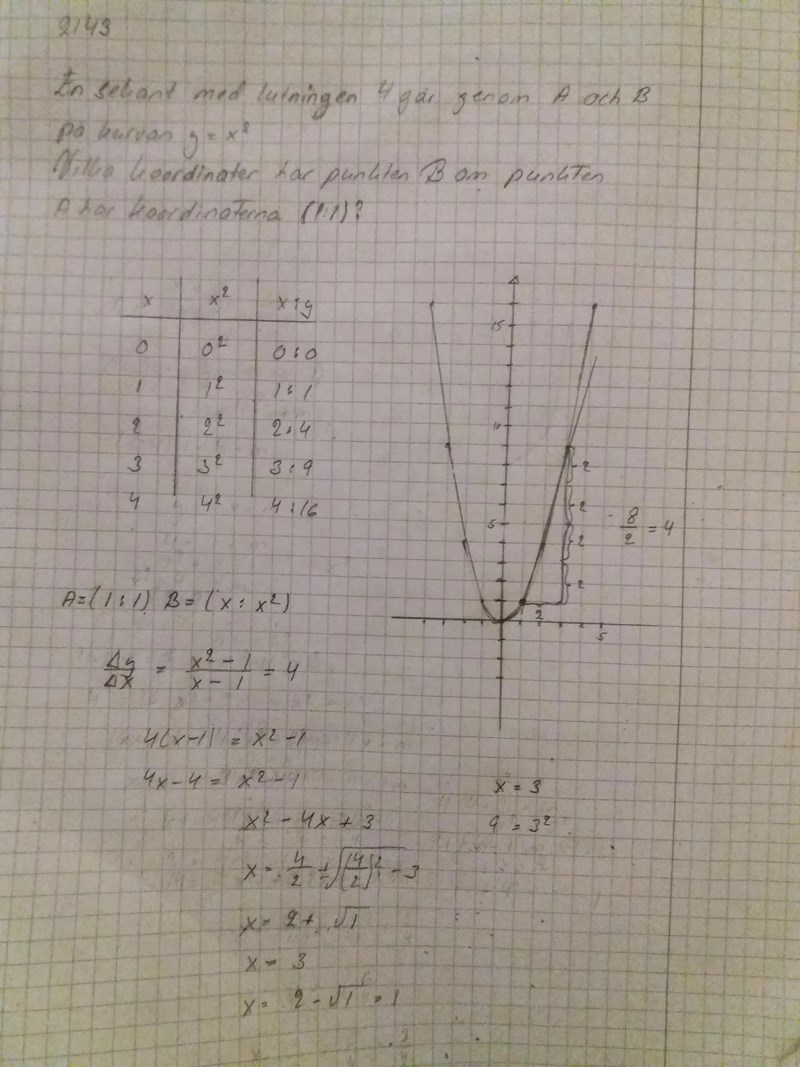 2143
En sekant med lutningen 4 går genom A och B
på kurvan y = x²
Vilka koordinater har punkten B om punkten
A har koordinaterna (1:1)?
x x² x:y
0 0² 0:0
1 1² 1:1
2 2² 2:4
3 3² 3:9
4 4² 4:16
15
10
5
5
2
2
2
2
2
8/2 = 4
A=(1:1) B=(x:x²)
Δy/Δx = x²-1/x-1 = 4
4(x-1) = x²-1
4x-4 = x²-1
x²-4x+3
x= 4/2 ± √(4/2)²-3
x= 2+ √1
x= 3
x= 2-√1 = 1
x = 3
9 = 3²